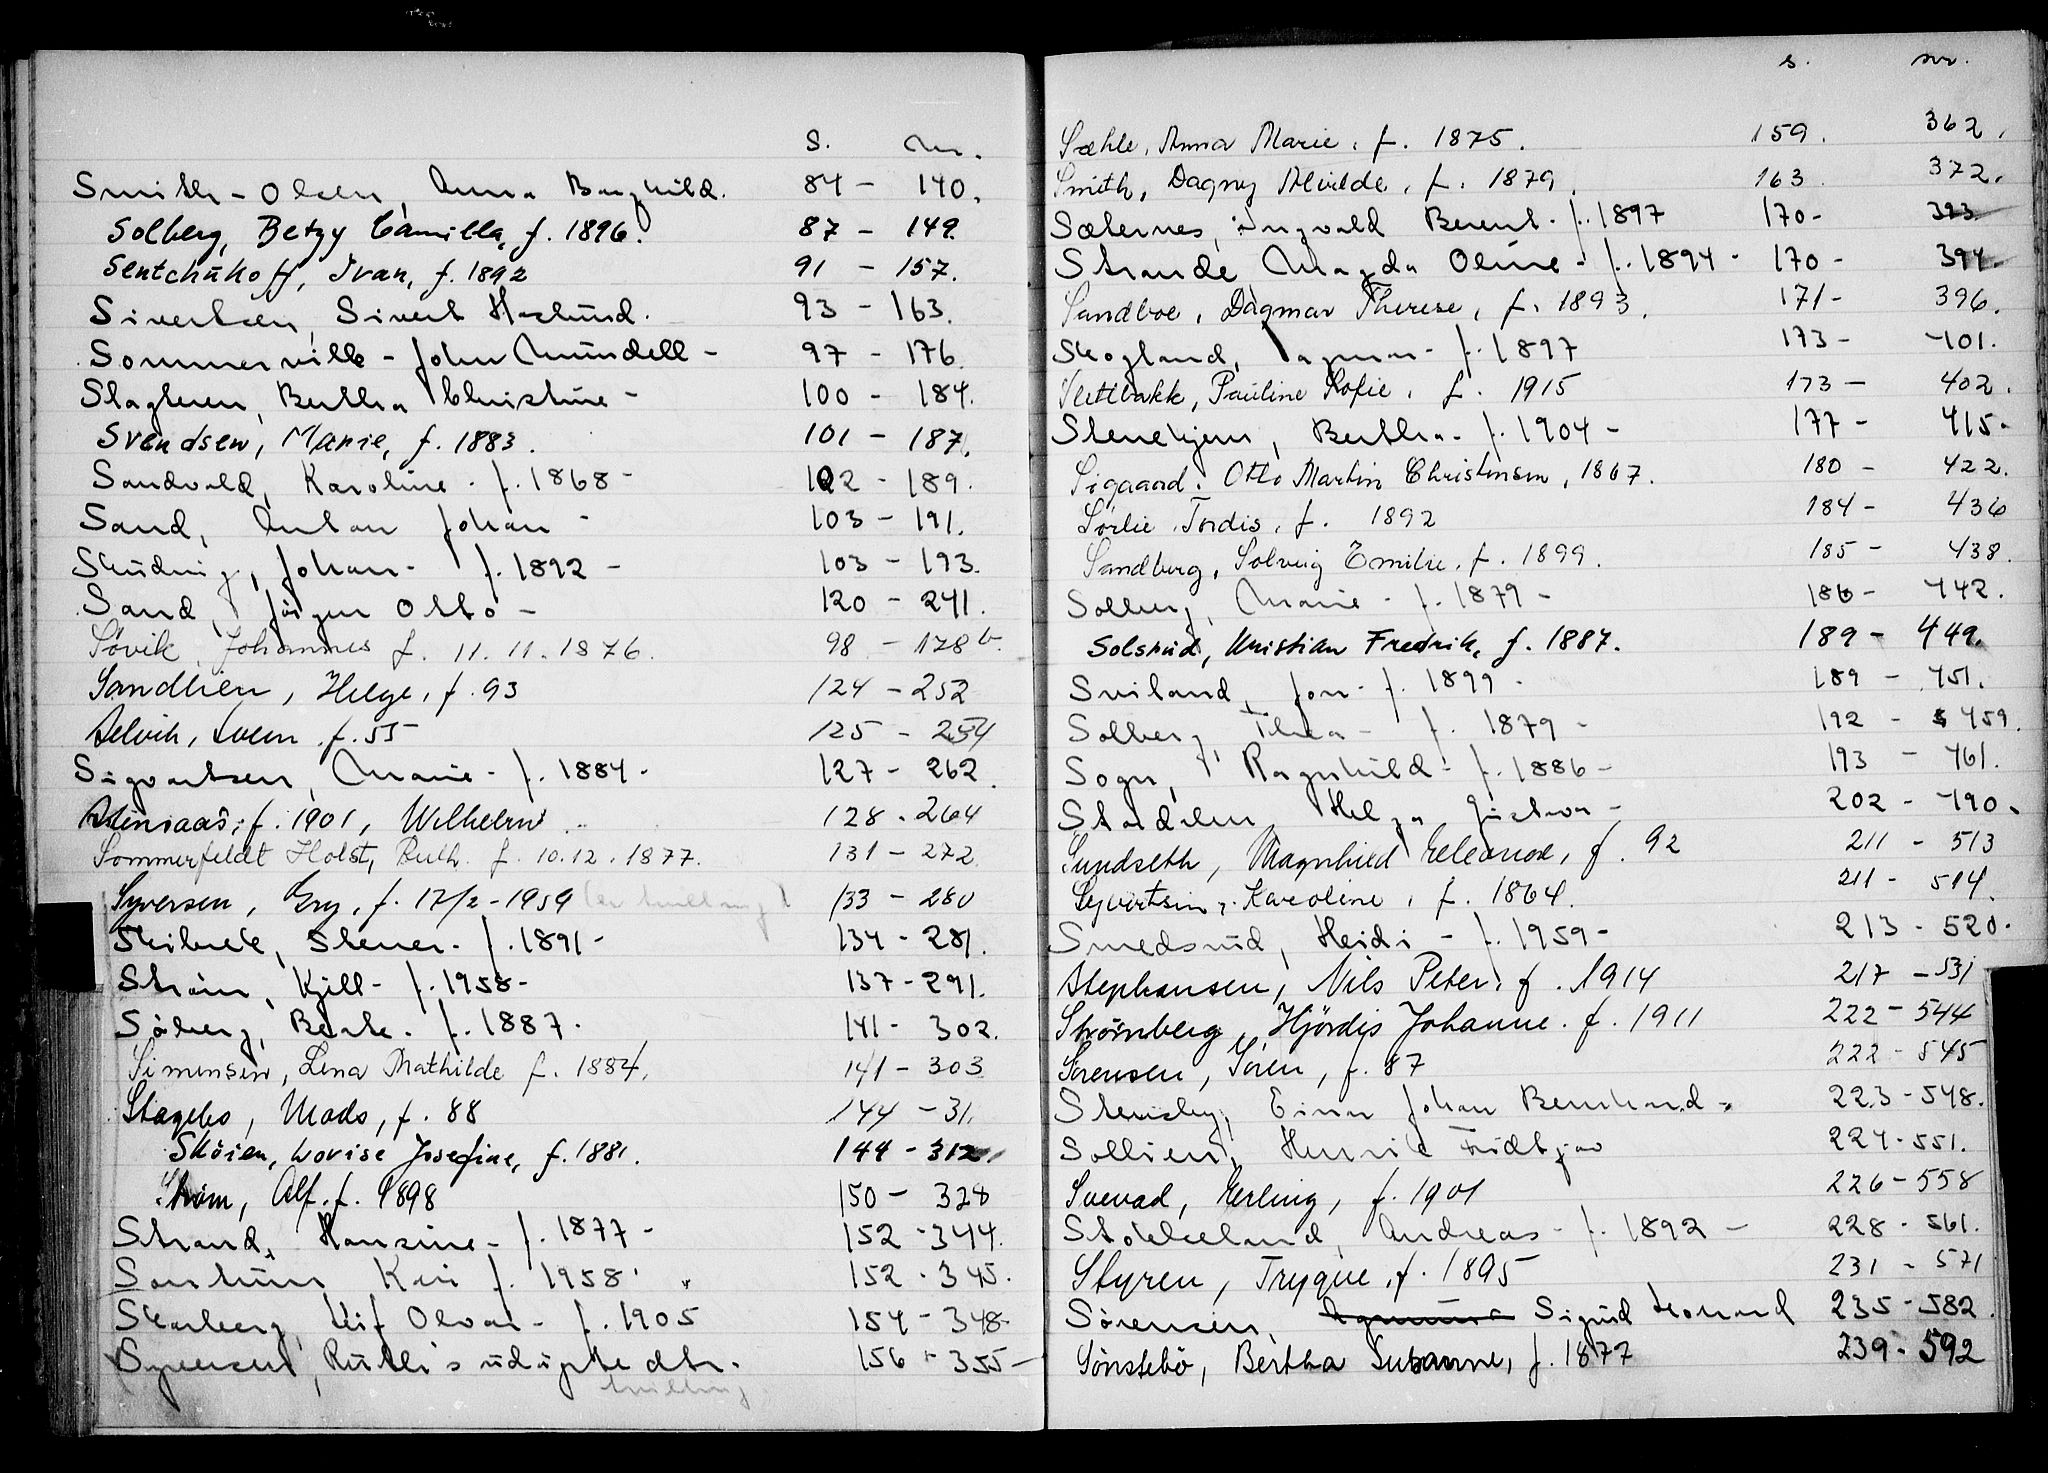 S. Nr.
Smith-Olsen, Anna Borghild. 84 - 140.
Solberg, Betzy Camilla, f. 1896. 87 - 149.
Sentchukoff, Ivan, f. 1892 91 - 157.
Sivertsen, Sivert Haslund. 93 - 163.
Sommerville - John Mundell - 97 - 176.
Slagteren, Bertha Christine - 100 - 184.
Svendsen, Marie, f. 1883. 101 - 187.
Sandvold, Karoline - f. 1868 - 102 - 189.
Sand, Anton Johan - 103 - 191.
Skudvig, Johan - f. 1892 - 103 - 193.
Sand, Jörgen Otto - 120 - 241.
Søvik, Johannes f. 11.11.1876. 98 - 178 b.
Sandlien, Helge, f. 93 124 - 252
Selvik, Svein f. 55 125 - 254
Sigvartsen, Marie - f. 1884 - 127 - 262.
Stensaas, f. 1901, Wilhelm 128 - 264
Sommerfeldt Holst, Ruth f. 10.12.1877. 131 - 272
Syversen, Gry, f. 17/2 - 1959 (er tvilling) 133 - 280
Skibrek, Stener - f. 1891 - 134 - 281.
Strøm, Kjell - f. 1958 - 137 - 291.
Söberg, Berte - f. 1887. 141 - 302.
Simensen, Lena Mathilde f. 1884. 141 - 303
Stagebo, Mads, f. 88 144 - 31.
Sköien, Lovise Josefine, f. 1881. 144 - 312
Strøm, Alf. f. 1898 150 - 328
Strand, Hansine - f. 1877 - 152 - 344.
Kari f. 1958 152 - 345.
Skarberg, Leif Olvar - f. 1905 154 - 348.
Syversen, Ruth's udöpte dtr. 156 - 355 -
tvilling
s. nr.
Sæhle, Anna Marie, f. 1875. 159. 362.
Smith, Dagny Alvilde, f. 1879. 163. 372.
Sæternes, Ingvald Berent - f. 1897 170 - 393
Strande Magda Oline - f. 1894 - 170 - 394.
Sandboe, Dagmar Therese, f. 1893. 171 - 396.
Skogland, Ragnar - f. 1897 173 - 401.
Slettbakk, Pauline Sofie, f. 1915 173 - 402.
Stenehjem, Bertha - f. 1904 - 177 - 415.
Sigaard. Otto Martin Christensen, 1867. 180 - 422.
Sørlie Tordis, f. 1892 184 - 436
Sandberg, Solveig Emilie, f. 1899. 185 - 438.
Solberg, Marie - f. 1879 - 186 - 442.
Solsrud, Kristian Fredrik, f. 1887. 189 - 449.
Sviland, Jon - f. 1899 - 189 - 451.
Solberg, Thea - f. 1879 - 192 - 459.
Sogn, Ragnhild - f. 1886 - 193 - 461.
Stordalen Helga Gustava - 202 - 490.
Sundseth, Magnhild Eleonor, f. 92 211 - 513
Syvertsen, Karoline, f. 1864. 211 - 514.
Smedsrud, Heidi - f. 1959 - 213 - 520.
Stephansen, Nils Peter, f. 1914 217 - 531
Strömberg, Hjördis Johanne. f. 1911 222 - 544
Sörensen, Sören, f. 87 222 - 545
Stensby, Einar Johan Bernhard - 223 - 548.
Sollien, Henrik Fridtjov 224 - 551.
Svevad, Erling, f. 1901 226 - 558
Stokkeland, Andreas - f. 1892 - 228 - 561.
Styren, Trygve, f. 1895 231 - 571
Sörensen, Sigurd Leonard 235 - 582.
Sönstebö, Bertha Susanne, f. 1877 239 - 592